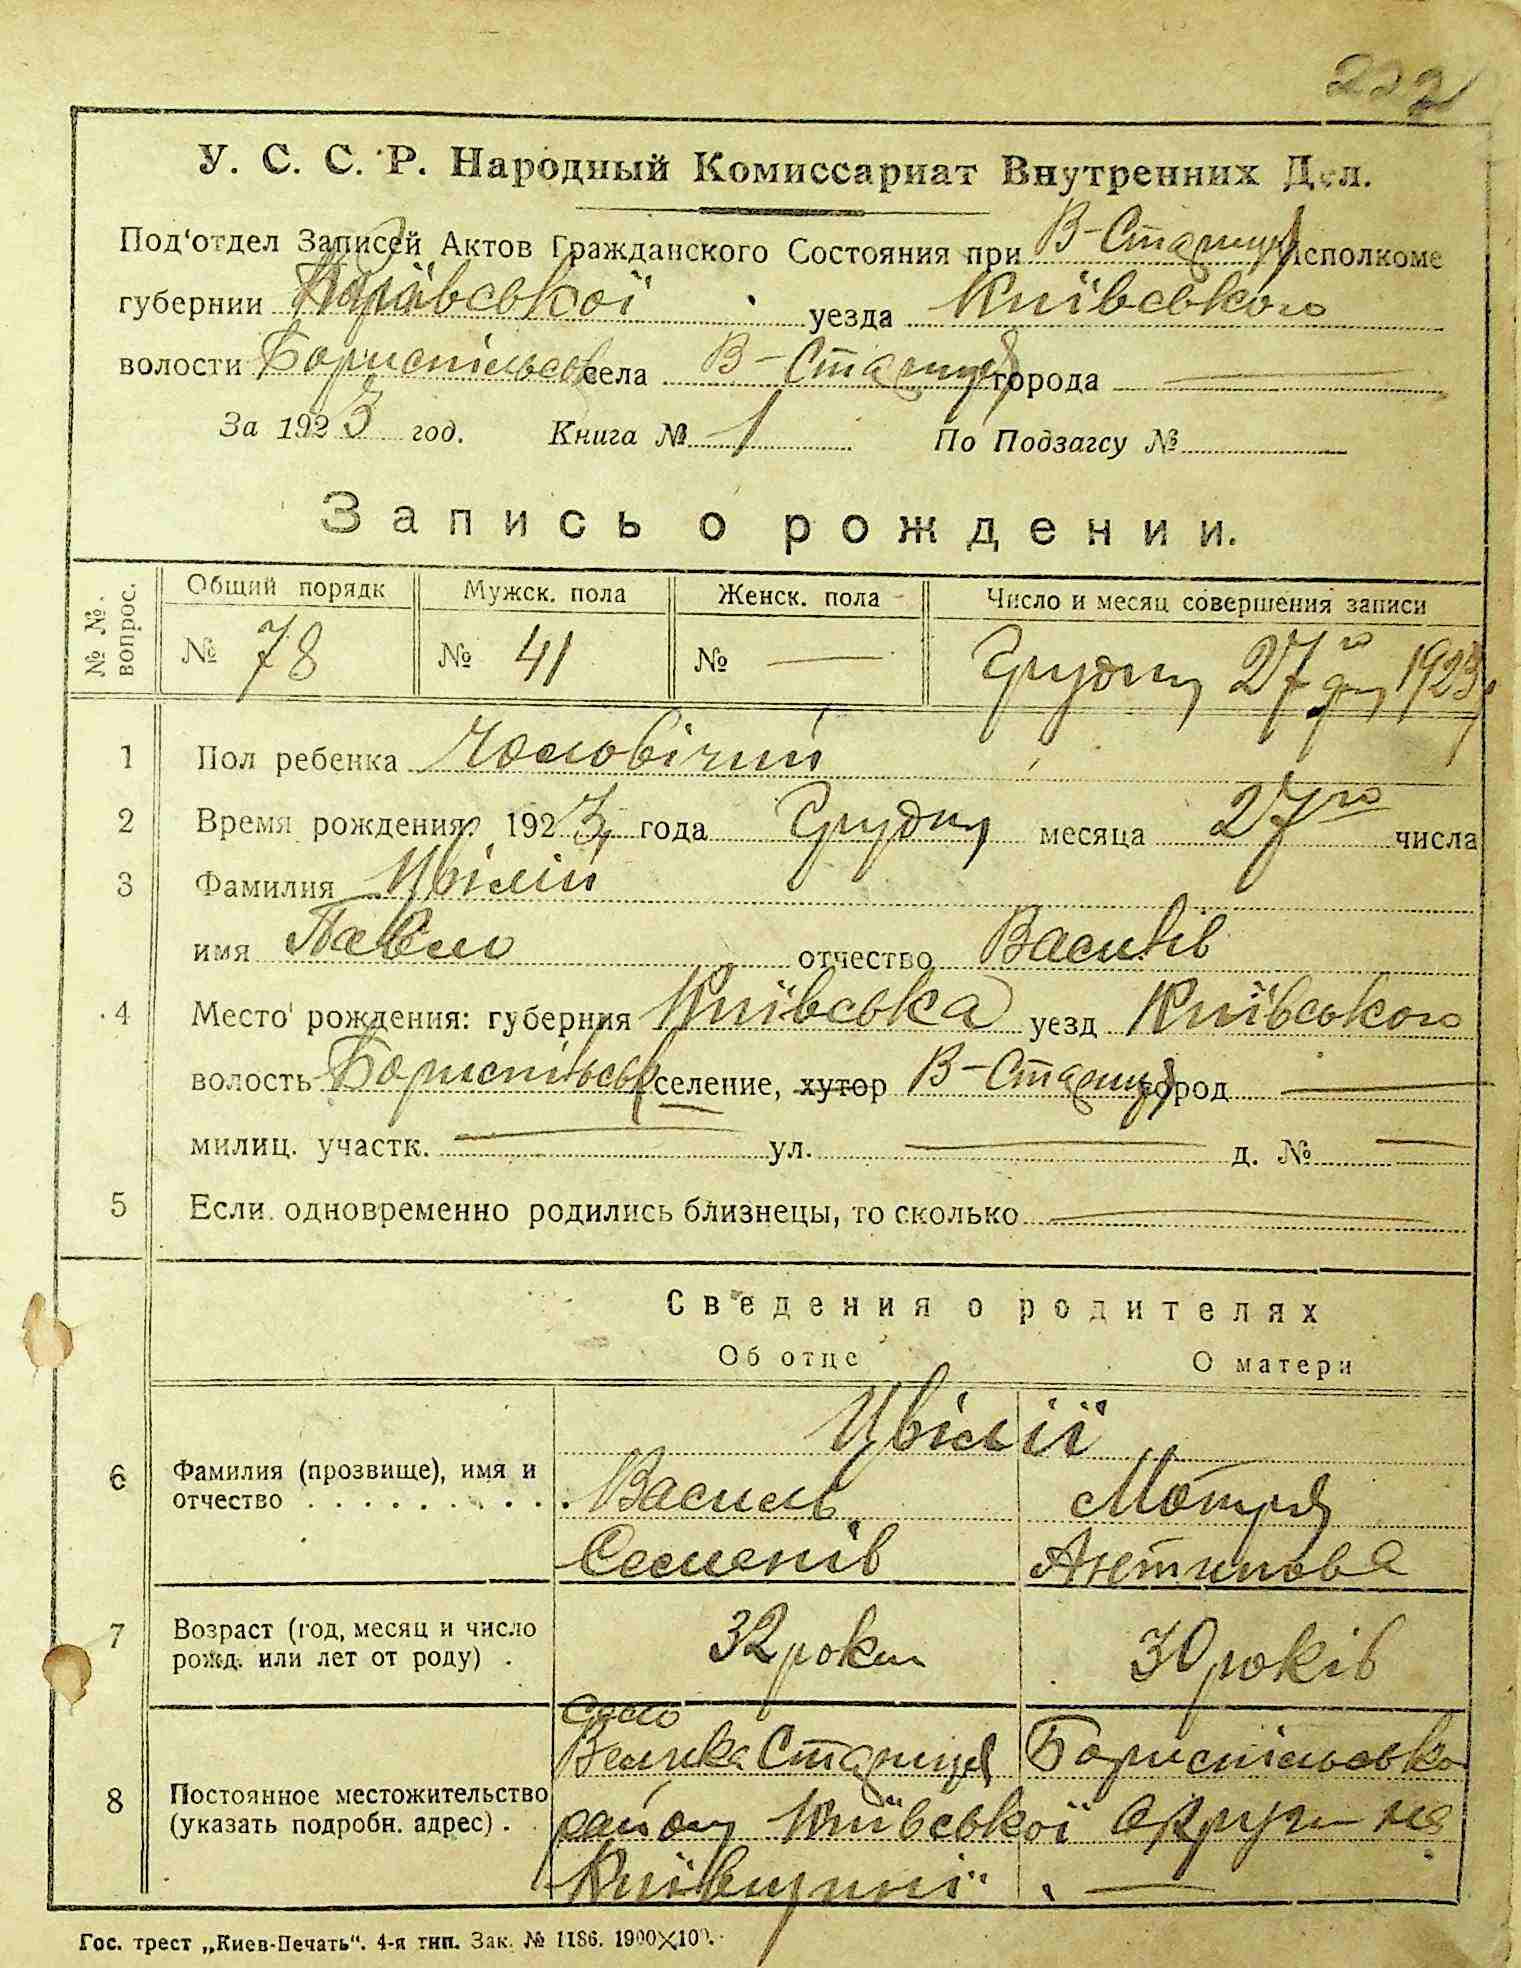 222
У. С. С. Р. Народный Комиссариат Внутренних Дел.
Под‘отдел Записей Актов Гражданского Состояния при В-Стариця Исполкоме
губернии Київської уезда Київського
волости Бориспільськ села В-Стариця города —
За 1923 год. Книга № 1 По Подзагсу №
Запись о рождении.
№ № вопрос. Общий порядк Мужск. пола Женск. пола Число и месяц совершения записи
№ 78 № 41 № — Грудня 27го дня 1923 р
1 Пол ребенка Чоловічий
2 Время рождения: 1923 года Грудня месяца 27го числа
3 Фамилия Цвілій
имя Павло отчество Василів
4 Место рождения: губерния Київська уезд Київського
волость Бориспільськ селение, хутор В-Стариця город —
милиц. участк. — ул. — д. № —
5 Если одновременно родились близнецы, то сколько —
Сведения о родителях
Об отце О матери
Цвілії
6 Фамилия (прозвище), имя и отчество . . . . . . . . . . Василь Мотря
Семенів Антипова
7 Возраст (год, месяц и число рожд. или лет от роду) . 32 роки 30 років
село
Велика Стариця Бориспільсько
8 Постоянное местожительство (указать подробн. адрес) . . району Київської округи на
Київщині. —
Гос. трест „Киев-Печать“. 4-я тип. Зак. № 1186. 1900×100.